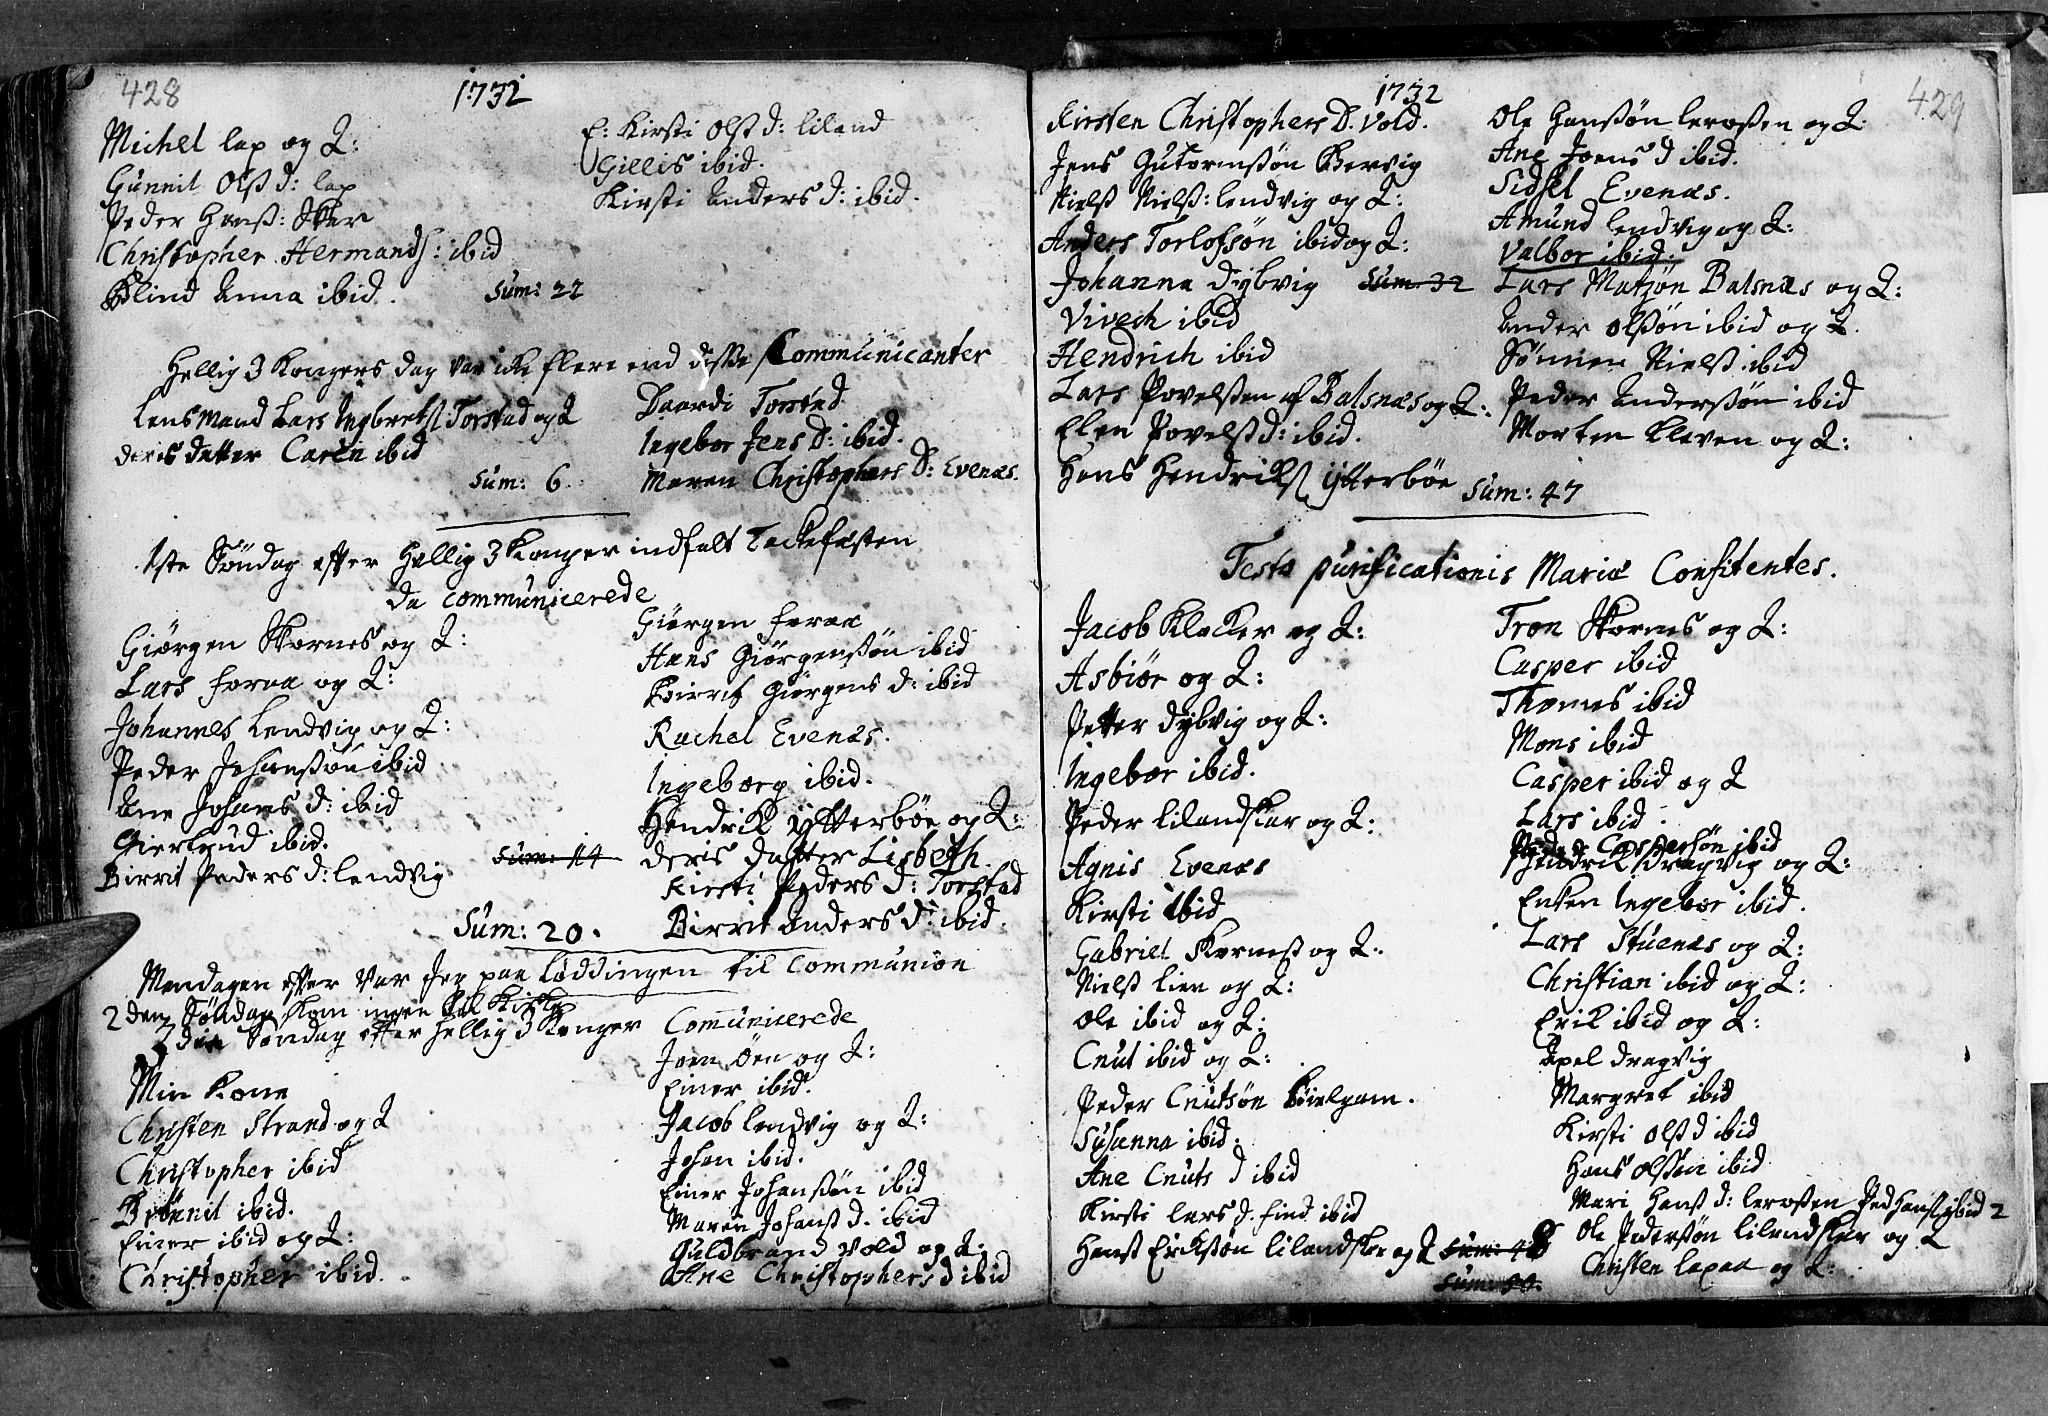 428
1732
Michel lap og Q:
Gunnil Olsd: lap
Peder Hanss: Skar
Christopher Hermands: ibid
Blind Anna ibid.
E: Kirsti Olsd: liland
Gillis ibid.
Kirsti Anders d: ibid.
Sum: 22
Hellig 3 Kongers dag var icke flere end disse Communicanter
Lens Mand Lars Ingbrets Torstad og Q
deris datter Caren ibid
Baardi Torstad
Ingebor Jens D: ibid.
Maren Christophers D: Evenæs.
Sum: 6.
1ste Søndag efter Hellig 3 Konger indfalt Tackefesten
da communicerede
Giørgen Skarnes og Q:
Lars foraa og Q:
Johannes Lendvig og Q:
Peder Johanssøn ibid
Ane Johans d: ibid
Giertrud ibid.
Birrit Peders d: lendvig
Sum: 14
Giørgen foraa
Hans Giørgenssøn ibid
Birrit Giørgens d: ibid
Rachel Evenæs.
Ingeborg ibid.
Hendrik ytterbøe og Q:
deris datter Lisbeth.
Kirsti Peders d: Torstad
Birrit Anders d: ibid.
Sum: 20.
Mandagen efter var jeg paa Løddingen til Communion
2den Søndag kom ingen til Kirke
3die Søndag efter Hellig 3 Konger
Communicerede
Min Kone
Christen Strand og Q
Christopher ibid
Brønnil ibid.
Einer ibid og Q:
Christopher ibid.
Joen Øen og Q:
Einer ibid.
Jacob lendvig og Q:
Johan ibid.
Einer Johanssøn ibid
Maren Johans d. ibid
Guldbrand vold og Q:
Ane Christophers d ibid
1732
429
Kirsten Christophers D. Vold.
Jens Gutormssøn Bervig
Niels Niels: lendvig og Q:
Anders Torlofsøn ibid og Q:
Johanna dybvig
Sum: 32
Vivech ibid
Hendrich ibid
Lars Povelsen af Balsnæs og Q:
Elen Povelsd: ibid.
Hans Hendriks ytterbøe
Ole Hanssøn lerossen og Q.
Ane Joens d ibid.
Sidsel Evenæs.
Amund lendvig og Q:
Valbor ibid.
Lars Matsøn Balsnæs og Q:
Ander olssøn ibid og Q.
Sønnen Niels ibid
Peder Anderssøn ibid
Morten Kleven og Q:
Sum: 47
Festo purificationis Mariæ Confitentes.
Jacob Klocker og Q:
Asbiør og Q:
Petter dybvig og Q:
Ingebor ibid.
Peder lilandskar og Q:
Agnis Evenæs
Kirsti ibid
Gabriel Skarnes og Q:
Niels lien og Q:
Ole ibid og Q:
Cnut ibid og Q:
Peder Cnutsøn
Susanna ibid.
Ane Cnuts d ibid
Kirsti lars d. find ibid
Hans Erikssøn lilandskar og Q
Tron Skarnes og Q:
Casper ibid
Thomes ibid
Mons ibid
Casper ibid og Q
Lars ibid.
Peder Caspersøn ibid
Hendrik dragvig og Q:
Enken Ingebor ibid.
Lars Stuenæs og Q:
Christian ibid og Q:
Erik ibid og Q:
Axel dragvig
Margret ibid
Kirsti Olsd ibid
Hans Olssøn ibid
Mari Hans d: lerossen Ped Hans ibid 2
Ole Pederssøn lilandskar og Q
Christen lapaa og Q: